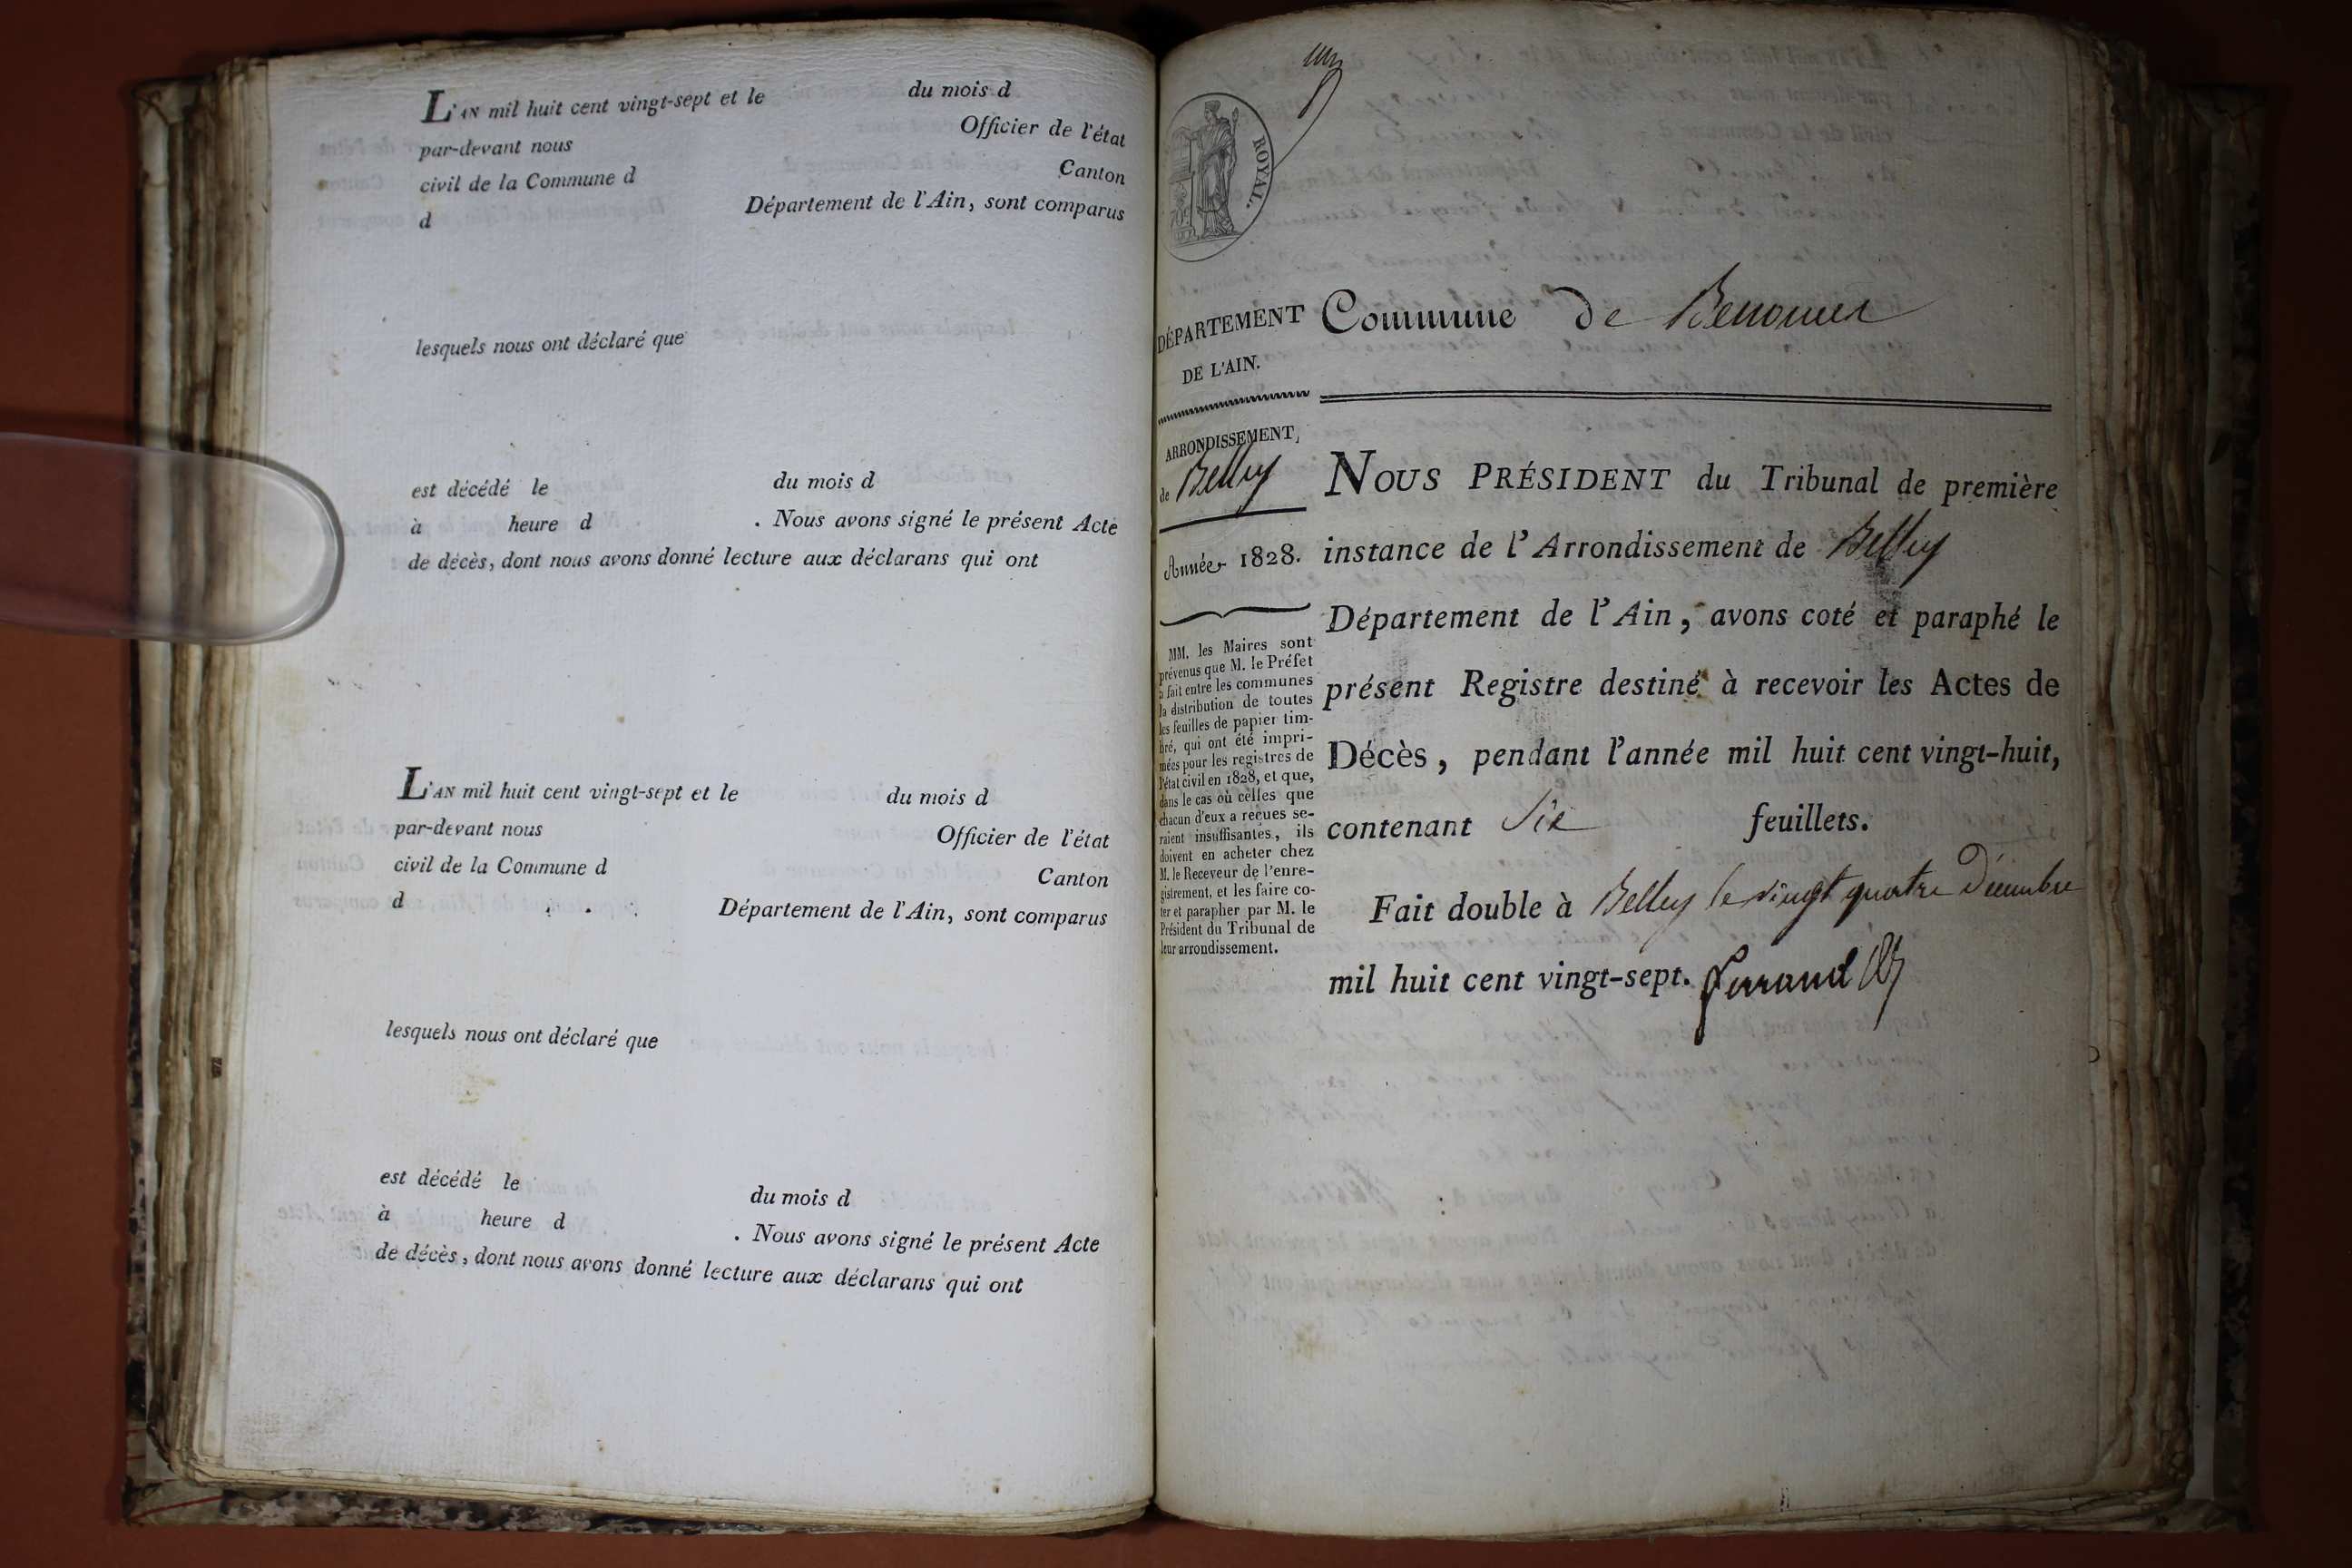 L'AN mil huit cent vingt-sept et le du mois d
par-devant nous Officier de l'état
civil de la Commune d Canton
d Département de l'Ain, sont comparus
lesquels nous ont déclaré que
est décédé le du mois d
à heure d . Nous avons signé le présent Acte
de décès, dont nous avons donné lecture aux déclarans qui ont
L'AN mil huit cent vingt-sept et le du mois d
par-devant nous Officier de l'état
civil de la Commune d Canton
d Département de l'Ain, sont comparus
lesquels nous ont déclaré que
est décédé le du mois d
à heure d . Nous avons signé le présent Acte
de décès, dont nous avons donné lecture aux déclarans qui ont
un
ROYAL.
DÉPARTEMENT
DE L'AIN.
ARRONDISSEMENT,
de Belley
Année 1828.
MM. les Maires sont
prévenus que M. le Préfet
a fait entre les communes
la distribution de toutes
les feuilles de papier tim-
bré, qui ont été impri-
mées pour les registres de
l'état civil en 1828, et que,
dans le cas où celles que
chacun d'eux a reçues se-
raient insuffisantes, ils
doivent en acheter chez
M. le Receveur de l'enre-
gistrement, et les faire co-
ter et parapher par M. le
Président du Tribunal de
leur arrondissement.
Commune de Benonces
NOUS PRÉSIDENT du Tribunal de première
instance de l'Arrondissement de Belley
Département de l'Ain, avons coté et paraphé le
présent Registre destiné à recevoir les Actes de
Décès, pendant l'année mil huit cent vingt-huit,
contenant Six feuillets.
Fait double à Belley le vingt quatre Décembre
mil huit cent vingt-sept. Ferrand